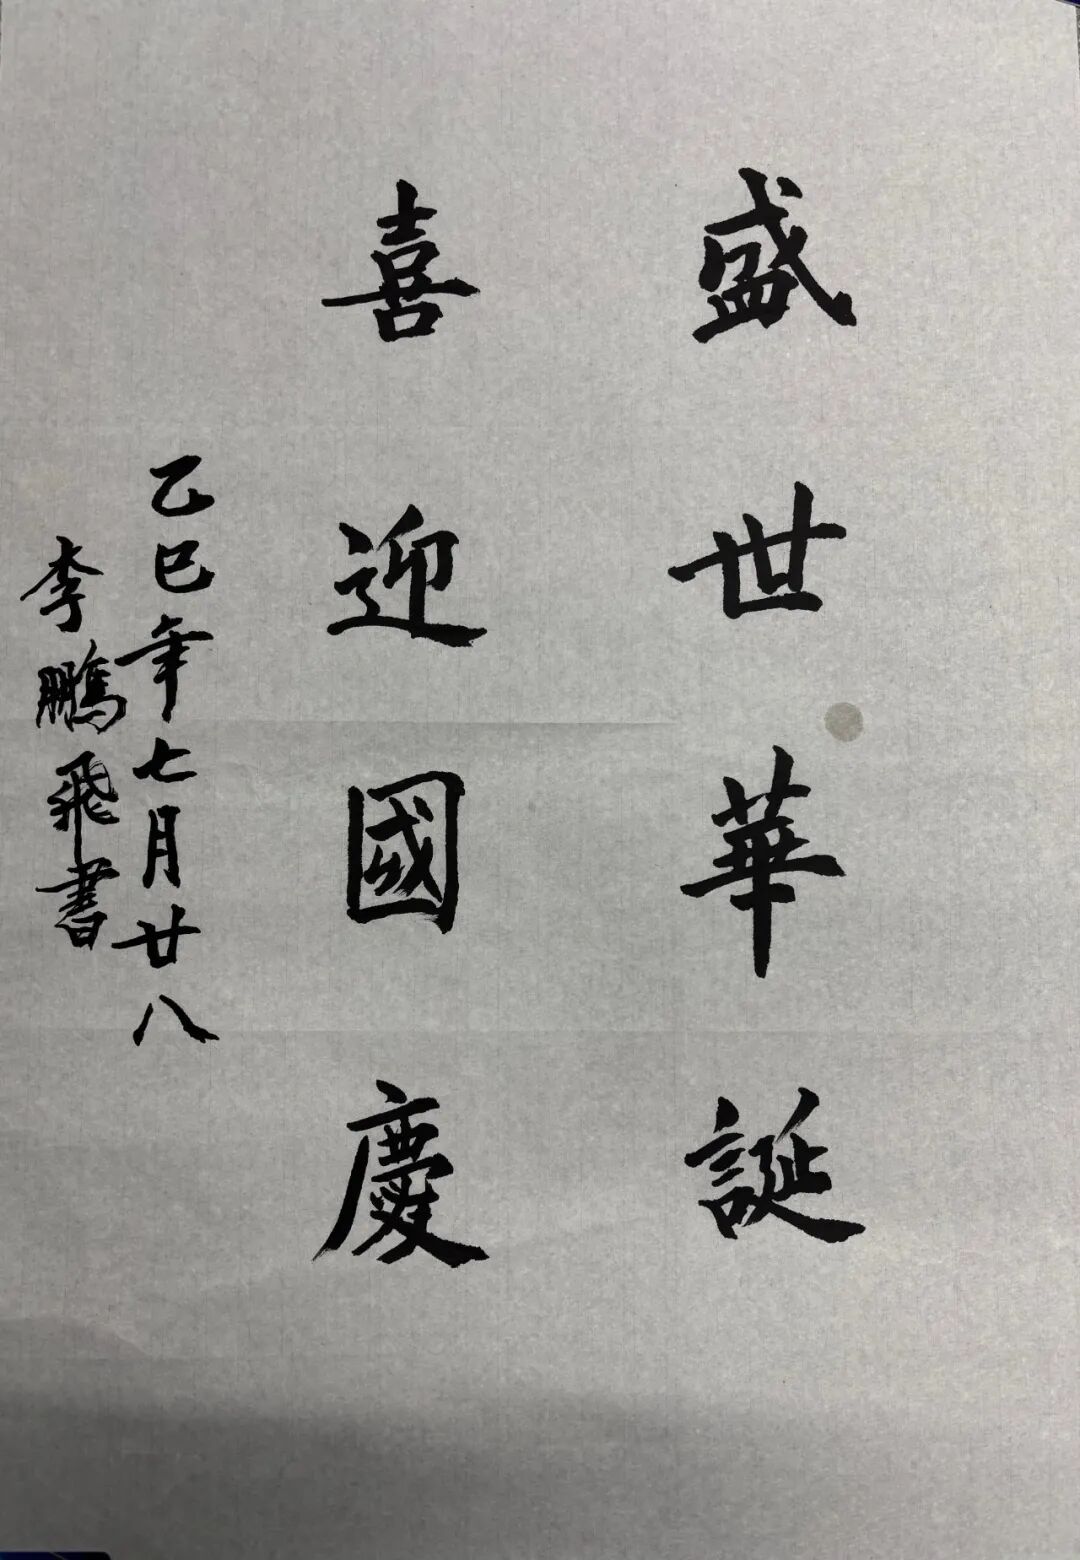 盛世華誕
喜迎國慶
乙巳年七月廿八
李鵬飛書